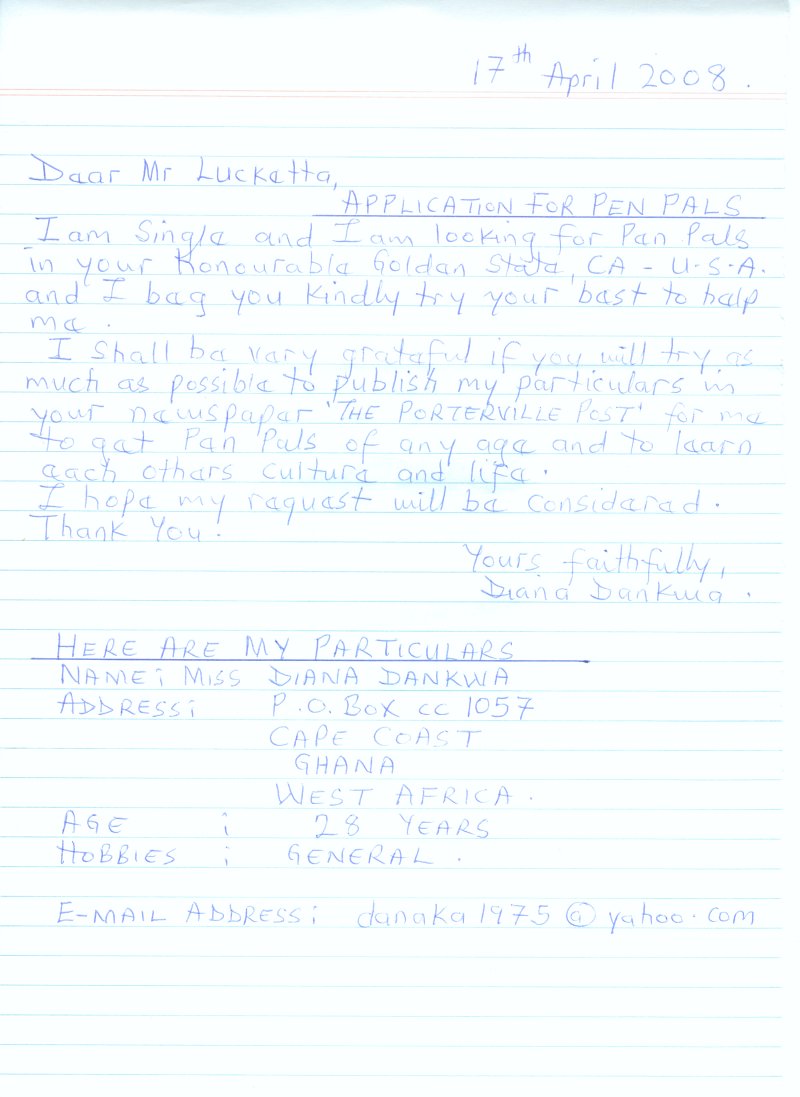 17th April 2008.
Dear Mr Lucketta,
APPLICATION FOR PEN PALS
I am Single and I am looking for Pen Pals
in your Honourable Golden State, CA - U-S-A.
and I beg you kindly try your best to help
me.
I shall be very grateful if you will try as
much as possible to publish my particulars in
your newspaper 'THE PORTERVILLE POST' for me
to get Pen Pals of any age and to learn
each others culture and life.
I hope my request will be considered.
Thank You.
Yours faithfully,
Diana Dankwa.
HERE ARE MY PARTICULARS
NAME: MISS DIANA DANKWA
ADDRESS: P.O. BOX CC 1057
CAPE COAST
GHANA
WEST AFRICA.
AGE : 28 YEARS
HOBBIES : GENERAL.
E-MAIL ADDRESS: danaka1975@yahoo.com